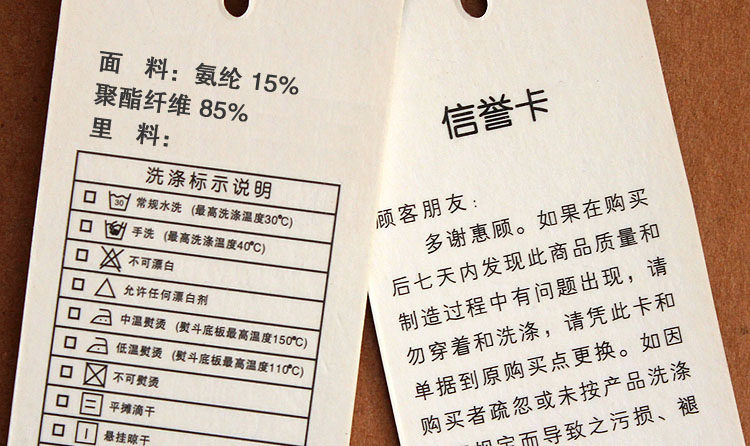 面 料：氨纶 15%
聚酯纤维 85%
里 料：
洗涤标示说明
30 常规水洗 (最高洗涤温度30℃)
手洗 (最高洗涤温度40℃)
不可漂白
允许任何漂白剂
中温熨烫 (熨斗底板最高温度150℃)
低温熨烫 (熨斗底板最高温度110℃)
不可熨烫
平摊滴干
悬挂晾干
信誉卡
顾客朋友：
多谢惠顾。如果在购买
后七天内发现此商品质量和
制造过程中有问题出现，请
勿穿着和洗涤，请凭此卡和
单据到原购买点更换。如因
购买者疏忽或未按产品洗涤
规定而导致之污损、褪